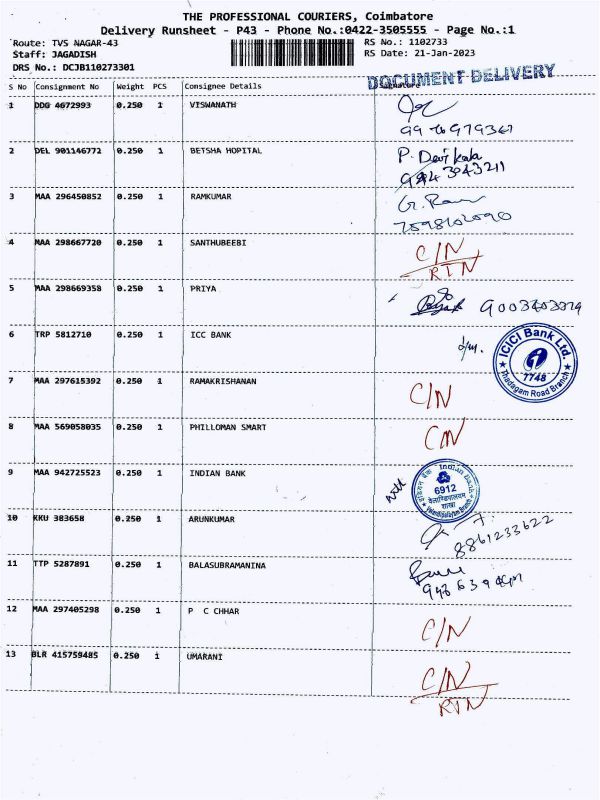 THE PROFESSIONAL COURIERS, Coimbatore
Delivery Runsheet - P43 - Phone No.:0422-3505555 - Page No.:1
Route: TVS NAGAR-43 RS No.: 1102733
Staff: JAGADISH RS Date: 21-Jan-2023
DRS No.: DCJB110273301
DOCUMENT DELIVERY
S No Consignment No Weight PCS Consignee Details Signature
1 DDG 4672993 0.250 1 VISWANATH
2 DEL 901146772 0.250 1 BETSHA HOPITAL P. Devikala
9443043211
3 MAA 296450852 0.250 1 RAMKUMAR G. Ram
7598102090
4 MAA 298667720 0.250 1 SANTHUBEEBI C/N
RTN
5 MAA 298669358 0.250 1 PRIYA
6 TRP 5812710 0.250 1 ICC BANK ICICI Bank Ltd.
7748
Thadagam Road Branch
7 MAA 297615392 0.250 1 RAMAKRISHANAN C/N
8 MAA 569058035 0.250 1 PHILLOMAN SMART C/N
9 MAA 942725523 0.250 1 INDIAN BANK Indian Bank
6912
शाखा
10 KKU 383658 0.250 1 ARUNKUMAR
8861233622
11 TTP 5287891 0.250 1 BALASUBRAMANINA
12 MAA 297405298 0.250 1 P C CHHAR C/N
13 BLR 415759485 0.250 1 UMARANI C/N
RTN